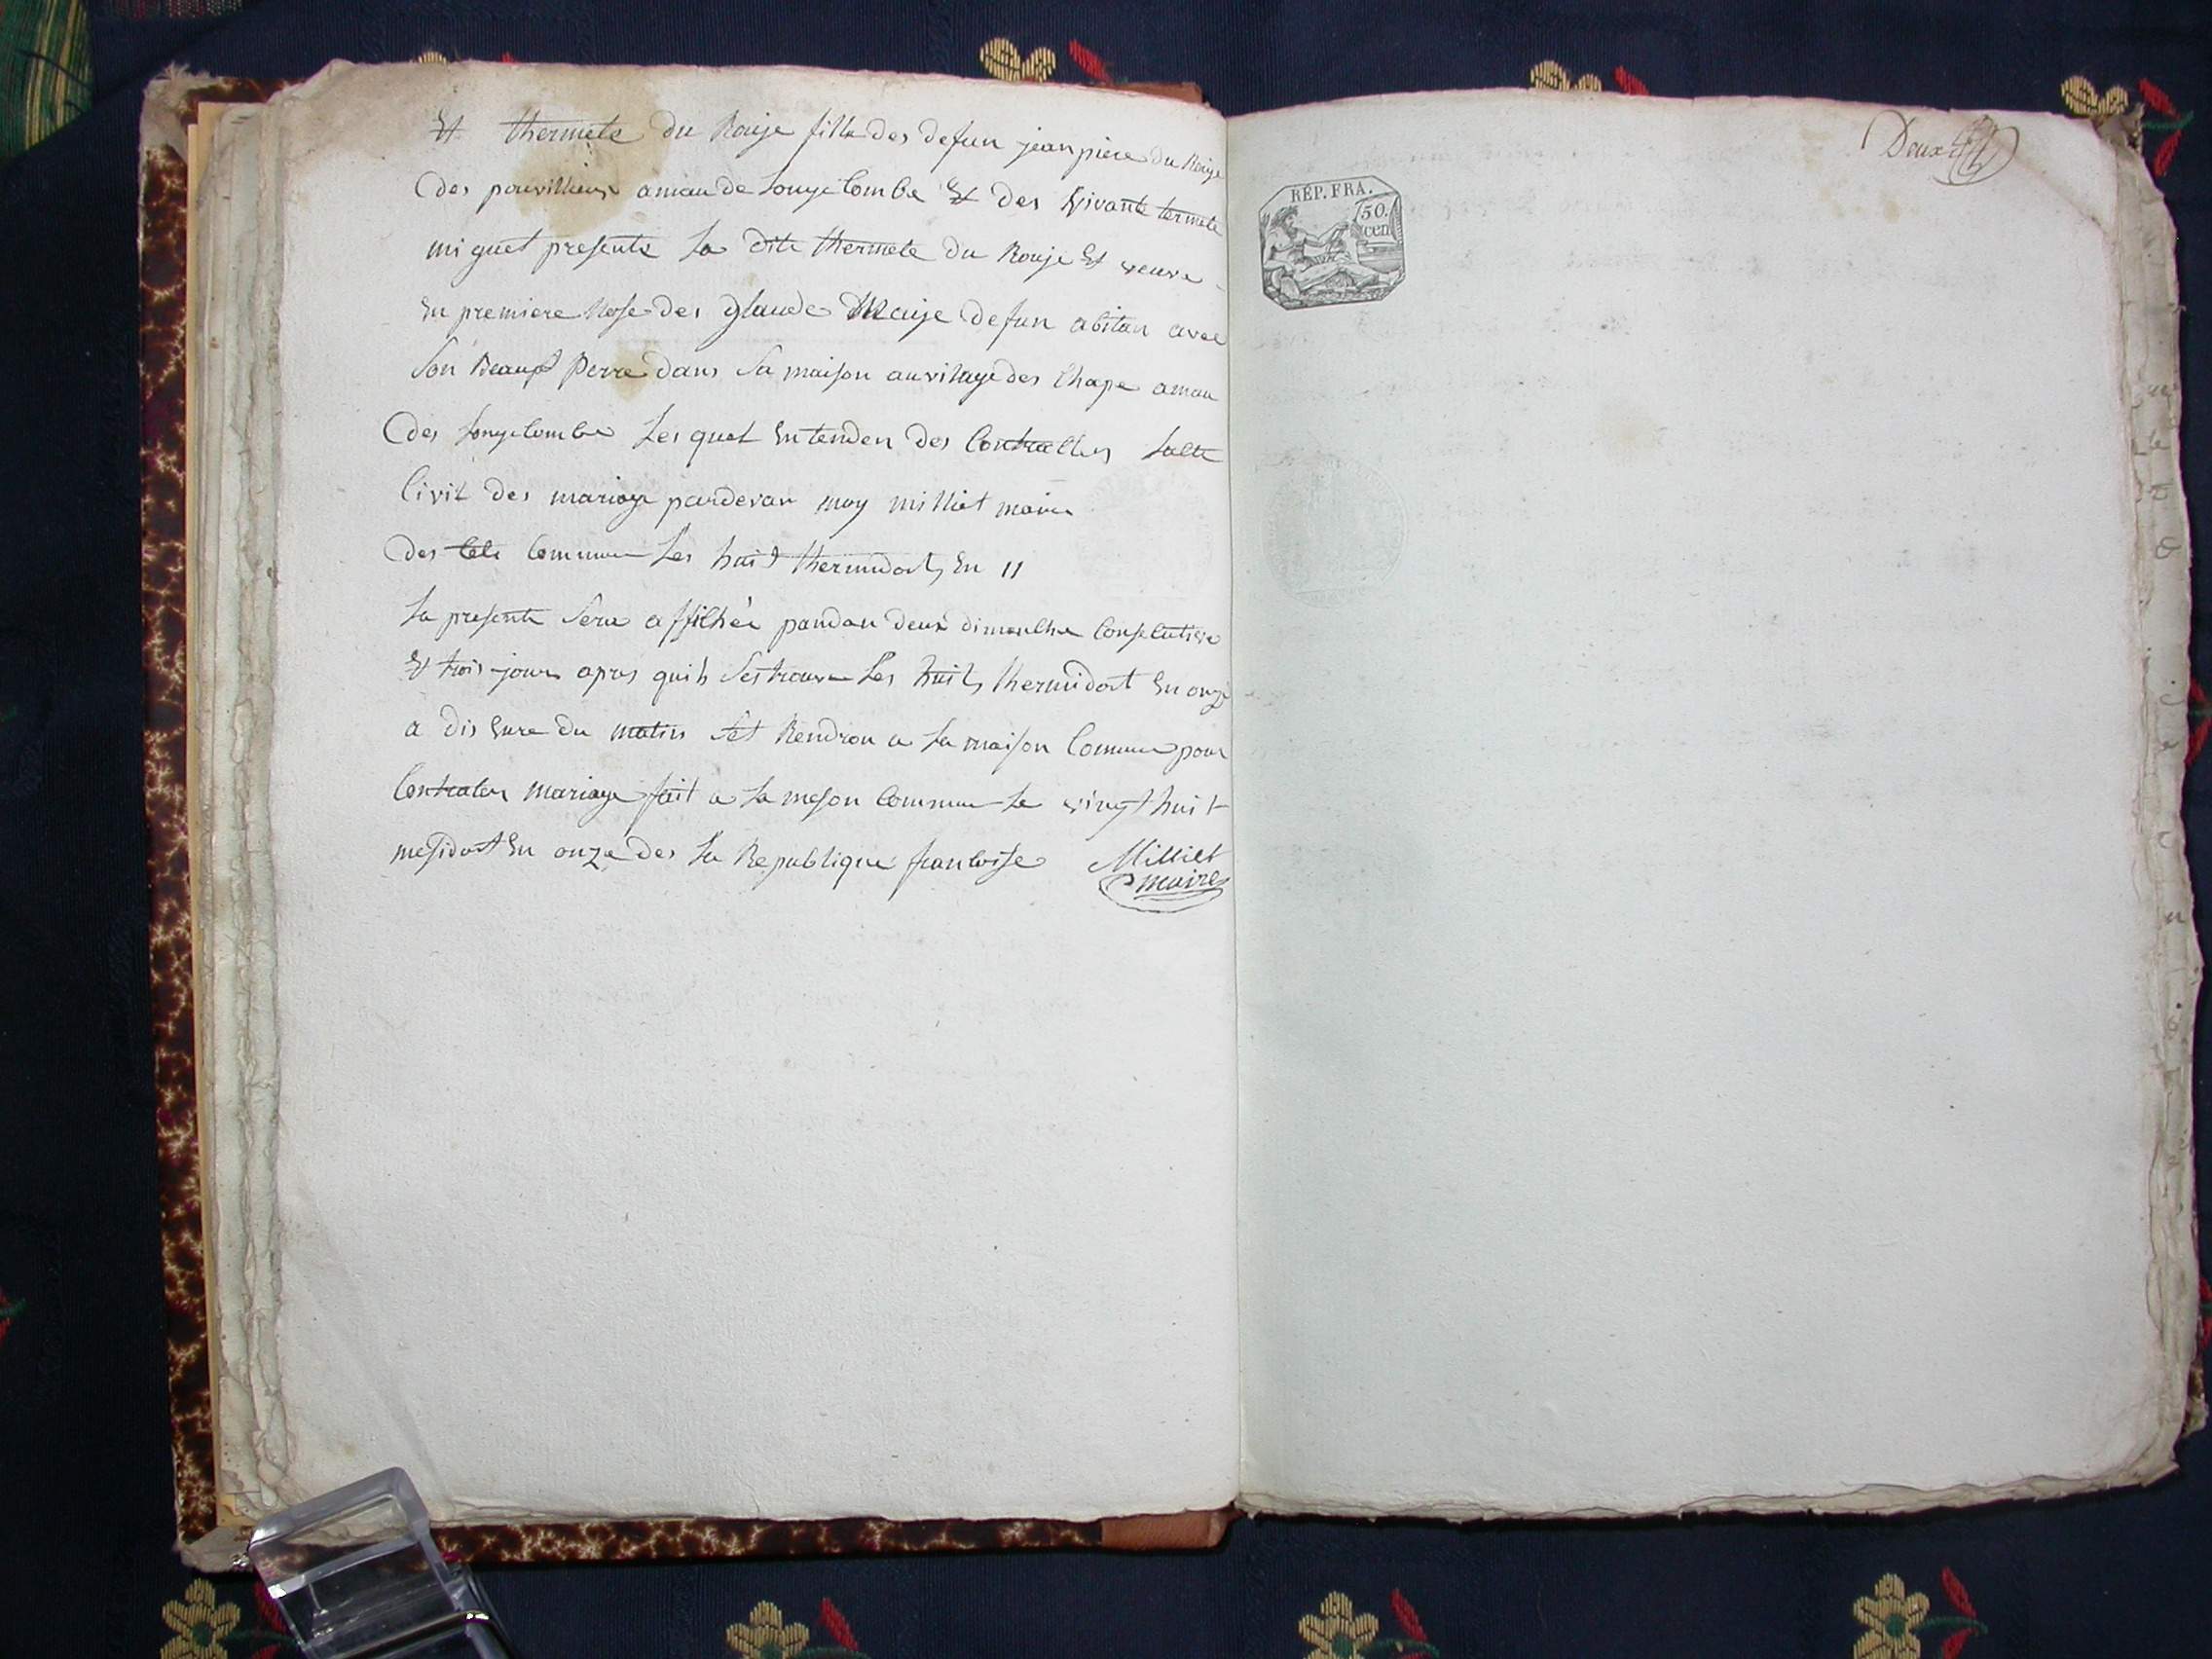 Et thermete du Rouje fille des defun jean piere du Rouje
des pouvillieux amau de longecombe Et des vivante termete
miguet presente la dite thermete du Rouje Et veuve
En premiere nose des glaude Maije defun abitan avec
son Beaupt perre dans sa maison au vilage des Chape amau
des longecombe Les quel Entenden des Contracther lacte
Civil des mariage pardevan moy milliet maire
des cete Commune Les huit thermidort En 11
La presente sera affichée pandan deux dimenche Consecutive
Et trois jours apres quils ses trouve Les huits thermidort En onze
a dis Eure du matin set Rendron a la maison Commune pour
Contrater mariage fait a la meson Commune Le vingt huit
mesidort En onze des La Republique francoise Milliet
maire
Deux
RÉP. FRA.
50.
cen